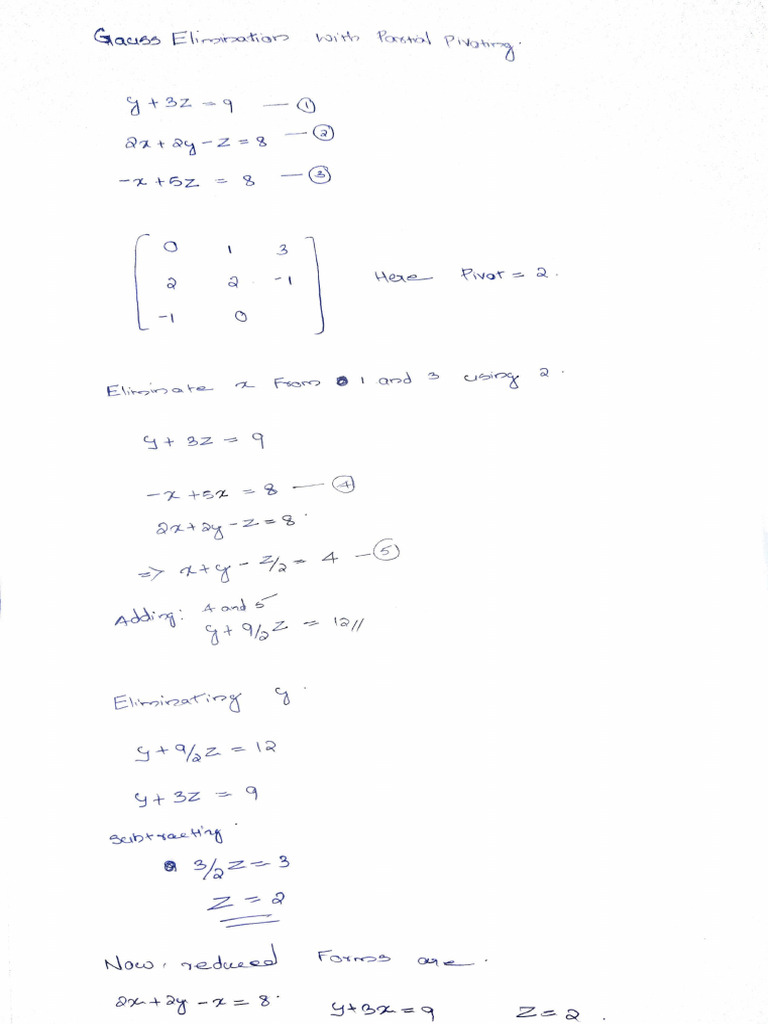 Gauss Elimination with Partial Pivoting.
y + 3z = 9 — ①
2x + 2y - z = 8 — ②
-x + 5z = 8 — ③
0 1 3
2 2 -1 Here Pivot = 2.
-1 0
Eliminate x from 1 and 3 using 2.
y + 3z = 9
-x + 5x = 8 — ④
2x + 2y - z = 8.
=> x + y - z/2 = 4 — ⑤
Adding: 4 and 5
y + 9/2 z = 12 //
Eliminating y.
y + 9/2 z = 12
y + 3z = 9
Subtracting.
3/2 z = 3
z = 2
Now, reduced Forms are.
2x + 2y - x = 8. y + 3x = 9 z = 2.